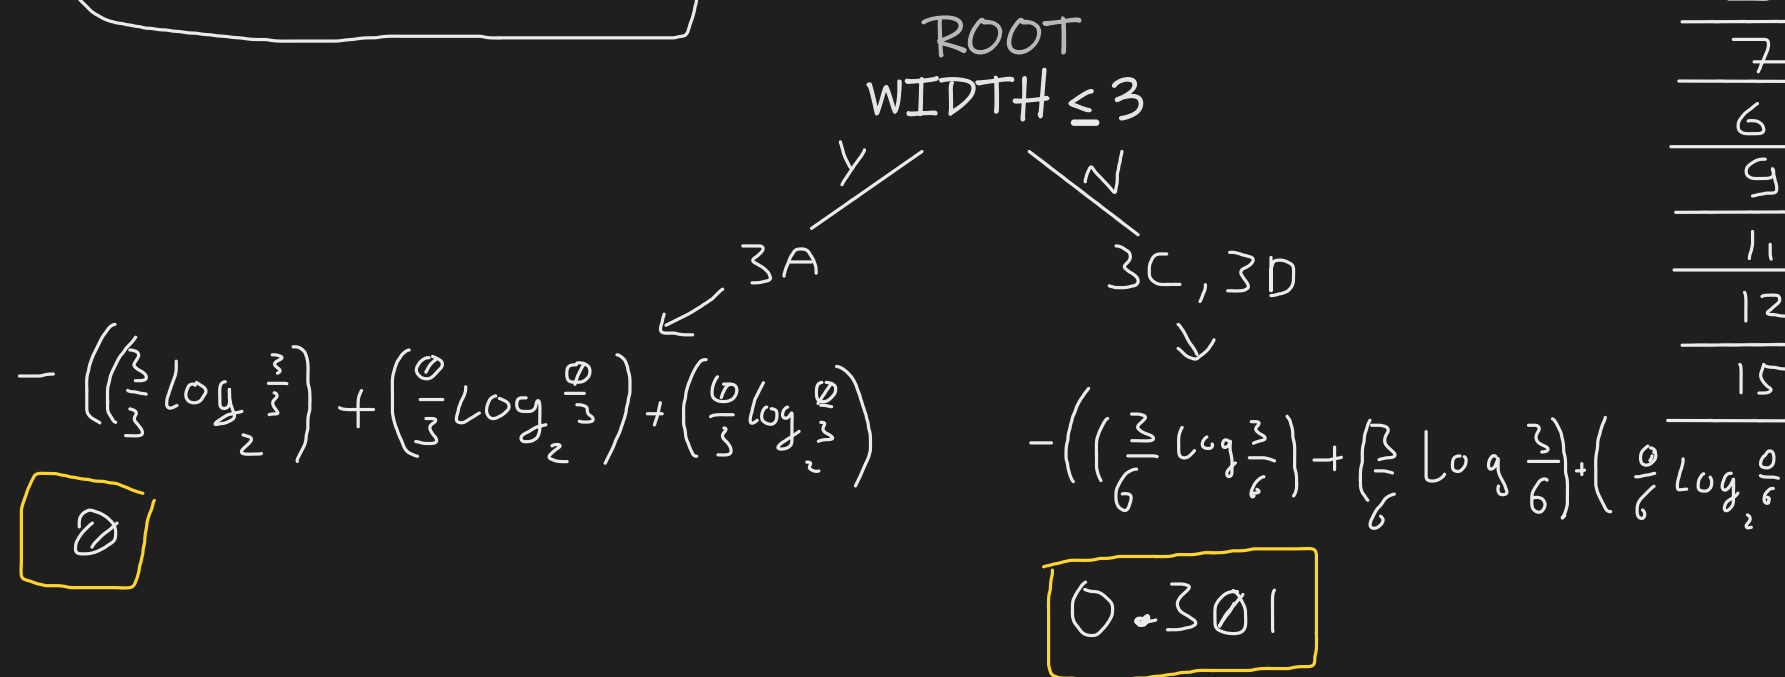 ROOT
WIDTH ≤ 3
Y N
3A 3C, 3D
- ((3/3 log₂ 3/3) + (0/3 log₂ 0/3) + (0/3 log₂ 0/3)
-((3/6 log 3/6) + (3/6 log 3/6) + (0/6 log₂ 0/6
0
0.301
7
6
9
11
12
15